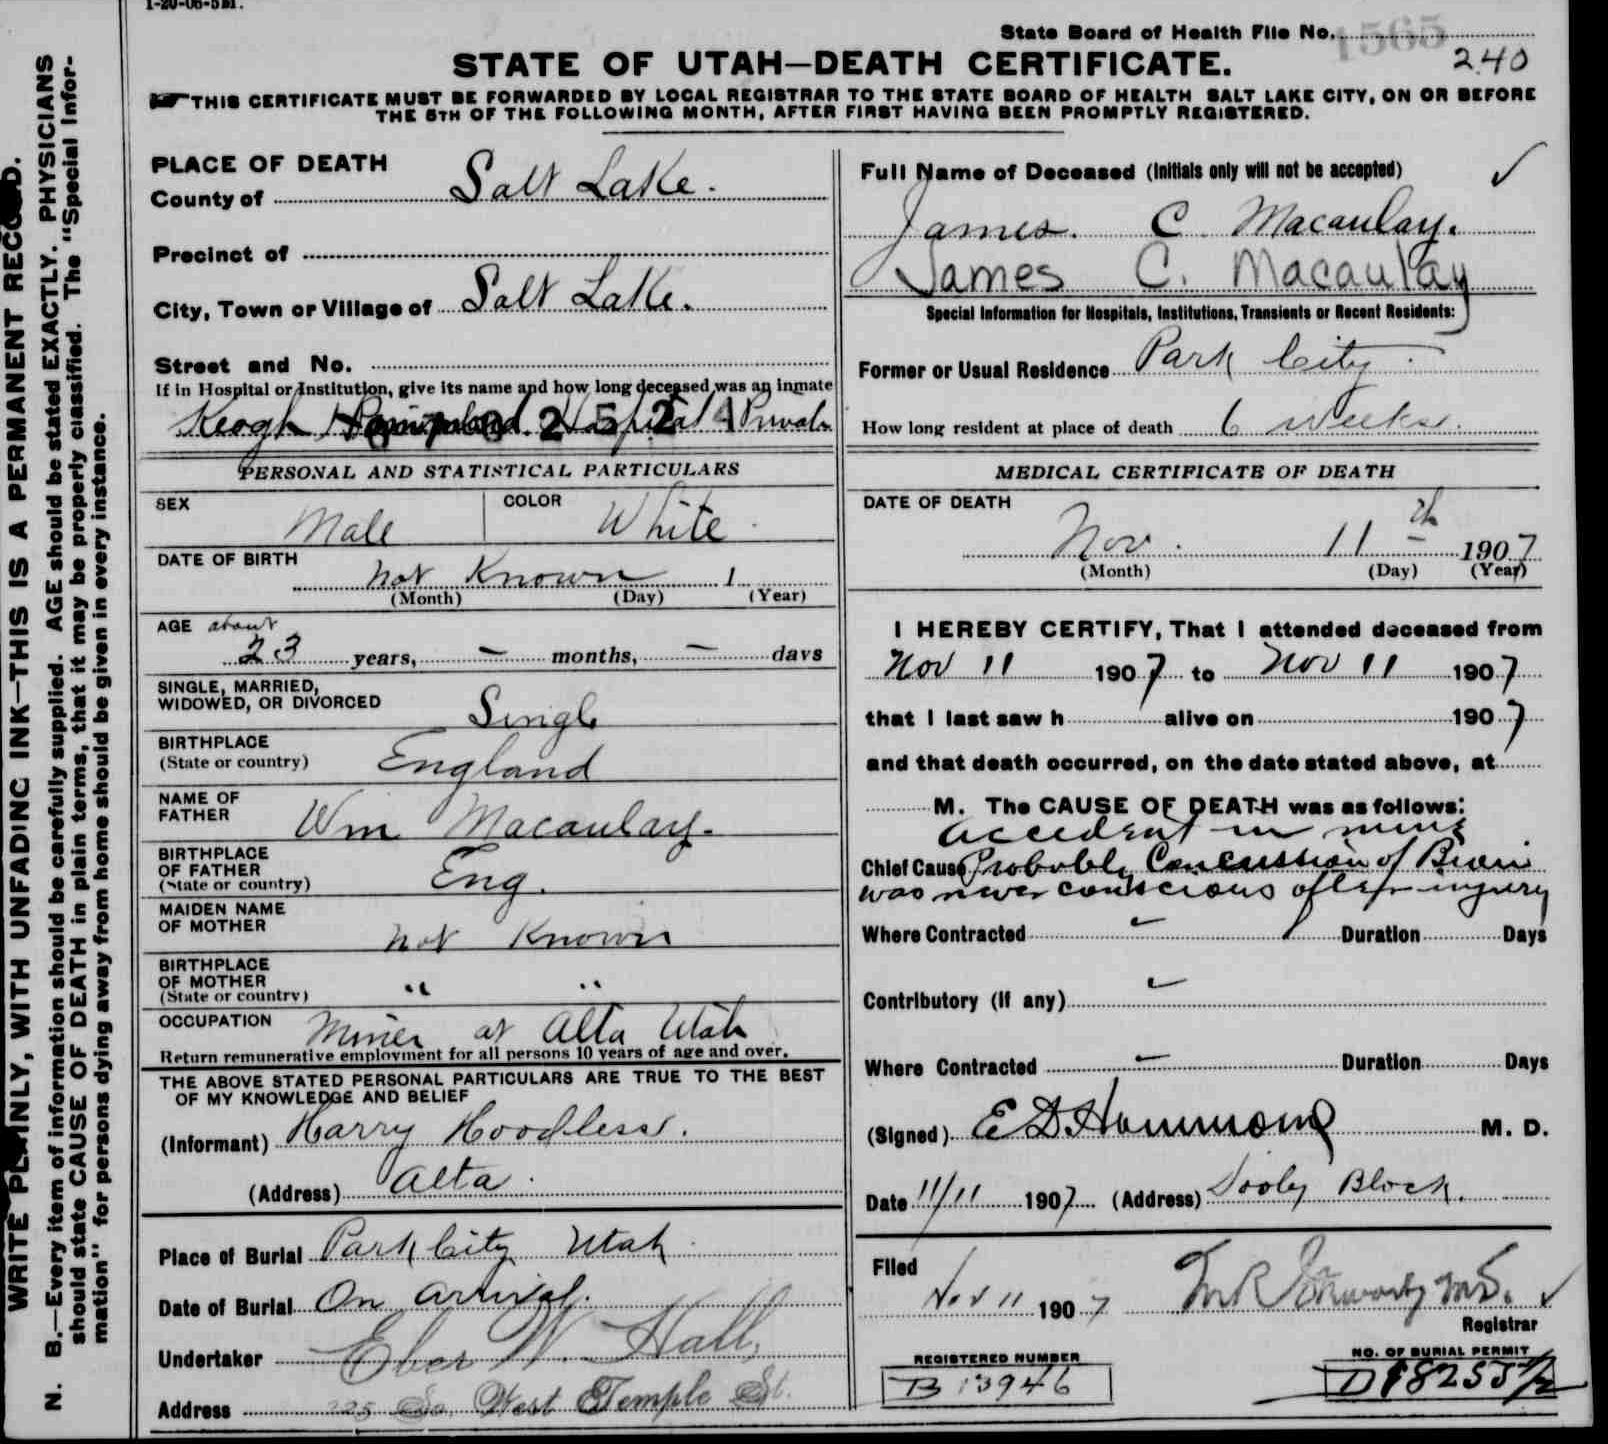 1-20-06-5M.
State Board of Health File No. 1565
240
STATE OF UTAH—DEATH CERTIFICATE.
THIS CERTIFICATE MUST BE FORWARDED BY LOCAL REGISTRAR TO THE STATE BOARD OF HEALTH SALT LAKE CITY, ON OR BEFORE
THE 5TH OF THE FOLLOWING MONTH, AFTER FIRST HAVING BEEN PROMPTLY REGISTERED.
WRITE PLAINLY, WITH UNFADING INK—THIS IS A PERMANENT RECORD.
N. B.—Every item of information should be carefully supplied. AGE should be stated EXACTLY. PHYSICIANS
should state CAUSE OF DEATH in plain terms, that it may be properly classified. The "Special Infor-
mation" for persons dying away from home should be given in every instance.
PLACE OF DEATH
County of Salt Lake.
Precinct of
City, Town or Village of Salt Lake.
Street and No.
If in Hospital or Institution, give its name and how long deceased was an inmate
Keogh Hospital Private
PERSONAL AND STATISTICAL PARTICULARS
SEX Male COLOR White
DATE OF BIRTH
Not Known 1
(Month) (Day) (Year)
AGE about
23 years, — months, — days
SINGLE, MARRIED,
WIDOWED, OR DIVORCED Single
BIRTHPLACE
(State or country) England
NAME OF
FATHER Wm Macaulay.
BIRTHPLACE
OF FATHER
(State or country) Eng.
MAIDEN NAME
OF MOTHER Not Known
BIRTHPLACE
OF MOTHER
(State or country) " "
OCCUPATION Miner at Alta Utah
Return remunerative employment for all persons 10 years of age and over.
THE ABOVE STATED PERSONAL PARTICULARS ARE TRUE TO THE BEST
OF MY KNOWLEDGE AND BELIEF
(Informant) Harry Hoodless.
(Address) Alta.
Place of Burial Park City Utah
Date of Burial On arrival.
Undertaker Eber W. Hall,
Address 225 So. West Temple St.
Full Name of Deceased (Initials only will not be accepted) ✓
James. C. Macaulay.
James C. Macaulay
Special Information for Hospitals, Institutions, Transients or Recent Residents:
Former or Usual Residence Park City
How long resident at place of death 6 weeks.
MEDICAL CERTIFICATE OF DEATH
DATE OF DEATH
Nov. 11th 1907
(Month) (Day) (Year)
I HEREBY CERTIFY, That I attended deceased from
Nov 11 1907 to Nov 11 1907
that I last saw h alive on 1907
and that death occurred, on the date stated above, at
M. The CAUSE OF DEATH was as follows:
accident in mine
Chief Cause Probably Concussion of Brain
was never conscious after injury
Where Contracted Duration Days
Contributory (If any)
Where Contracted — Duration Days
(Signed) E D Hammond M. D.
Date 11/11 1907 (Address) Dooly Block.
Filed
Nov 11 1907
Registrar
REGISTERED NUMBER
B 13946
NO. OF BURIAL PERMIT
D18255 1/2